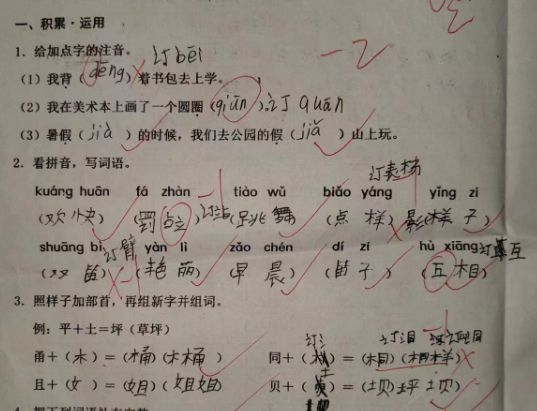 一、积累·运用
1. 给加点字的注音。 订bēi -2
(1) 我背(dēng)着书包去上学。
(2) 我在美术本上画了一个圆圈(qiūn)。订 quān
(3) 暑假(jià)的时候，我们去公园的假(jiǎ)山上玩。
2. 看拼音，写词语。 订表扬
kuáng huān fá zhàn tiào wǔ biǎo yáng yǐng zi
(欢快) (罚占) 订站 (跳舞) (点样) 影(样子)
shuāng bì yàn lì zǎo chén dí zi hù xiāng
(双笛) 订臂 (艳丽) (早晨) (笛子) (互相) 订互
3. 照样子加部首，再组新字并组词。
例：平+土=坪(草坪)
甬+(木)=(桶)(木桶) 同+( )=( )( )
且+(女)=(姐)(姐姐) 贝+( )=(坝)( )